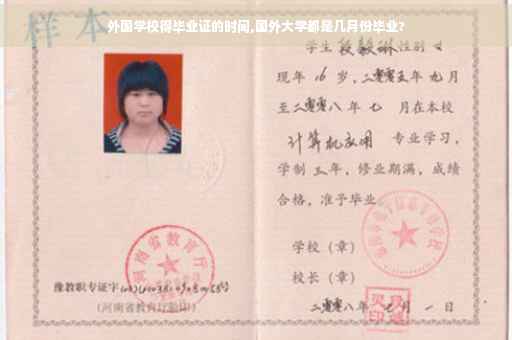 外国学校得毕业证的时间,国外大学都是几月份毕业?
样本
学生 段毅琳 性别 女
现年 16 岁，二零零五年 九月
至二零零八年 七 月在本校
计算机应用 专业学习，
学制 三 年，修业期满，成绩
合格，准予毕业。
学校（章）
校长（章）
二零零八年 七 月 一 日
河南省教育厅
豫教职专证字
(河南省教育厅验印)